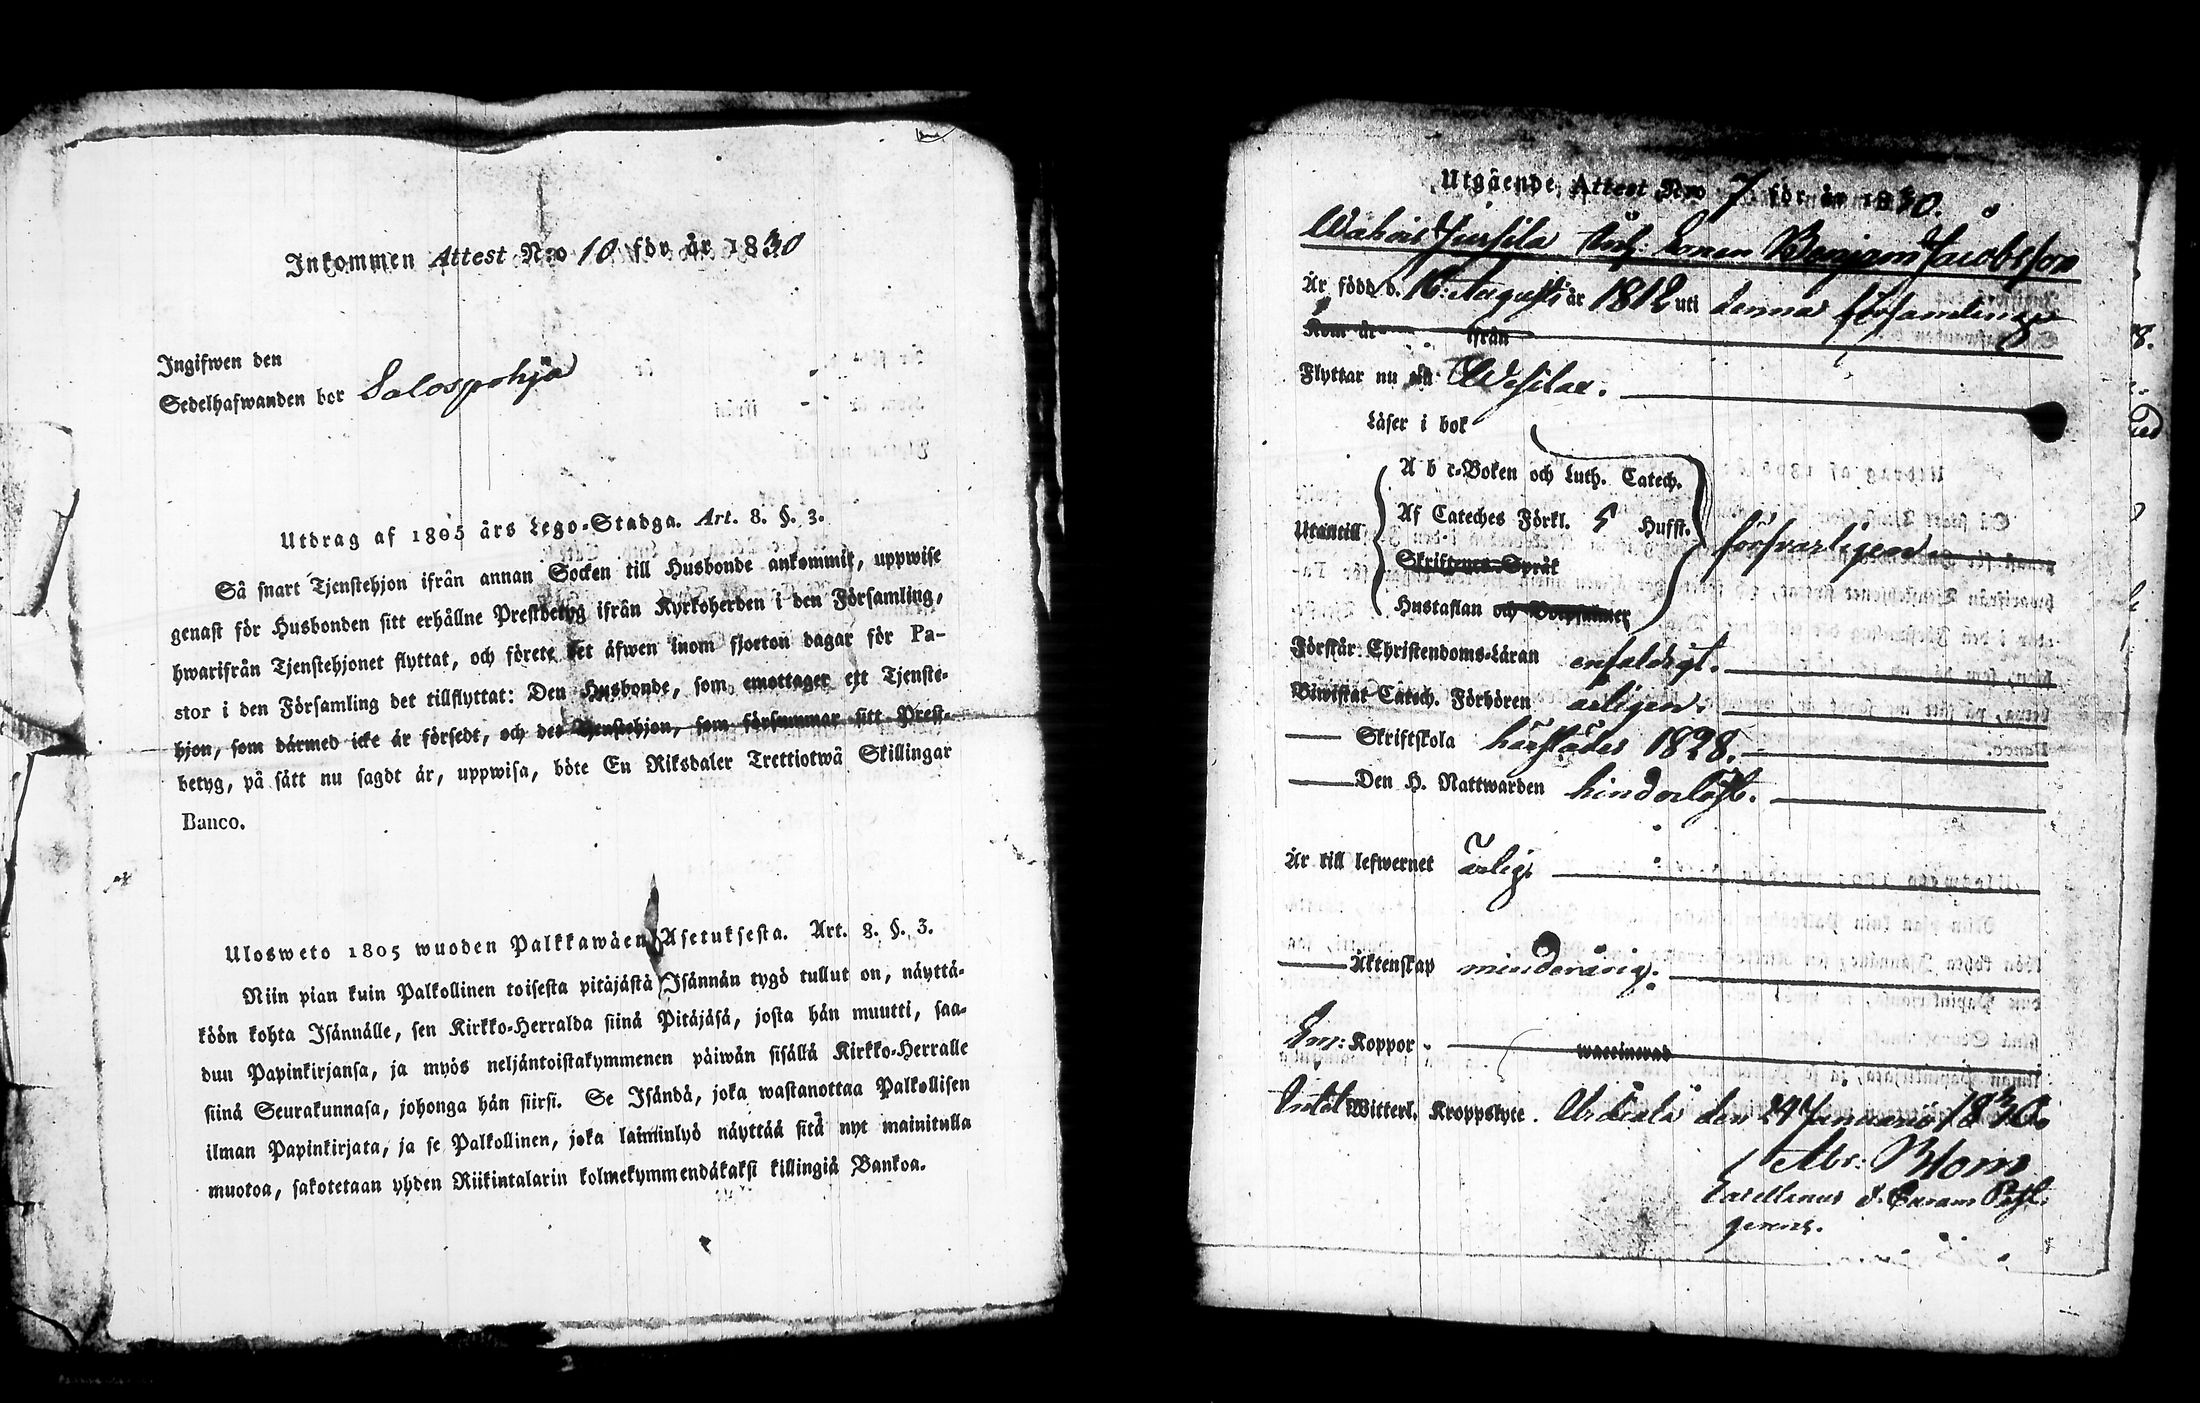 Inkommen Attest N:o 10 för år 1830
Ingifwen den
Sedelhafwanden bor Salospohja
Utdrag af 1805 års Lego-Stadga. Art. 8. §. 3.
Så snart Tjenstehjon ifrån annan Socken till Husbonde ankommit, uppwise
genast för Husbonden sitt erhållne Prestbetyg ifrån Kyrkoherden i den Församling,
hwarifrån Tjenstehjonet flyttat, och förete det äfwen inom fjorton dagar för Pa-
stor i den Församling det tillflyttat: Den Husbonde, som emottager ett Tjenste-
hjon, som därmed icke är försedt, och det Tjenstehjon, som försummar sitt Prest-
betyg, på sätt nu sagdt är, uppwisa, böte En Riksdaler Trettiotwå Skillingar
Banco.
Ulosweto 1805 wuoden Palkkawäen Asetuksesta. Art. 8. §. 3.
Niin pian kuin Palkollinen toisesta pitäjästä Isännän tygö tullut on, näyttä-
köön kohta Isännälle, sen Kirkko-Herralda siinä Pitäjäsä, josta hän muutti, saa-
dun Papinkirjansa, ja myös neljäntoistakymmenen päiwän sisällä Kirkko-Herralle
siinä Seurakunnasa, johonga hän siirsi. Se Isändä, joka wastanottaa Palkollisen
ilman Papinkirjata, ja se Palkollinen, joka laiminlyö näyttää sitä nyt mainitulla
muotoa, sakotetaan yhden Riikintalarin kolmekymmendäkaksi killingiä Bankoa.
Utgående Attest N:o 7 för år 1830.
Sonen Benjam Jacobsson
Är född d. 16. Augusti år 1812 uti denna församling
Kom år ifrån
Flyttar nu till Wesilax.
Läser i bok
A b c-Boken och Luth. Catech.
Utantill Af Cateches Förkl. 5 Hufst. försvarligen
Skriftenes Språk
Hustaflan och Bönpsalmer
Förstår Christendoms-Läran enfaldigt.
Biwistat Catech. Förhören årligen.
Skriftskola härstädes 1828.
Den H. Nattwarden hinderlöst.
Är till lefwernet ärlig.
Äktenskap minderårig.
Koppor. waccinerad
Witterl. Kroppslyte. Urdiala den 24 Januarii 1830.
Abr: Blom
Sacellanus & Curam Past.
gerens.